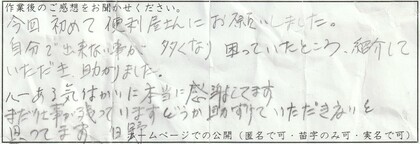 作業後のご感想をお聞かせください。
今回初めて便利屋さんにお願いしました。
自分で出来ない事が多くなり困っていたところ、紹介して
いただき、助かりました。
心ある気はがいに本当に感謝してます
まだ仕事が残っていますどうか助けていただきたいと
思ってます 日野
ームページでの公開(匿名で可・苗字のみ可・実名で可)